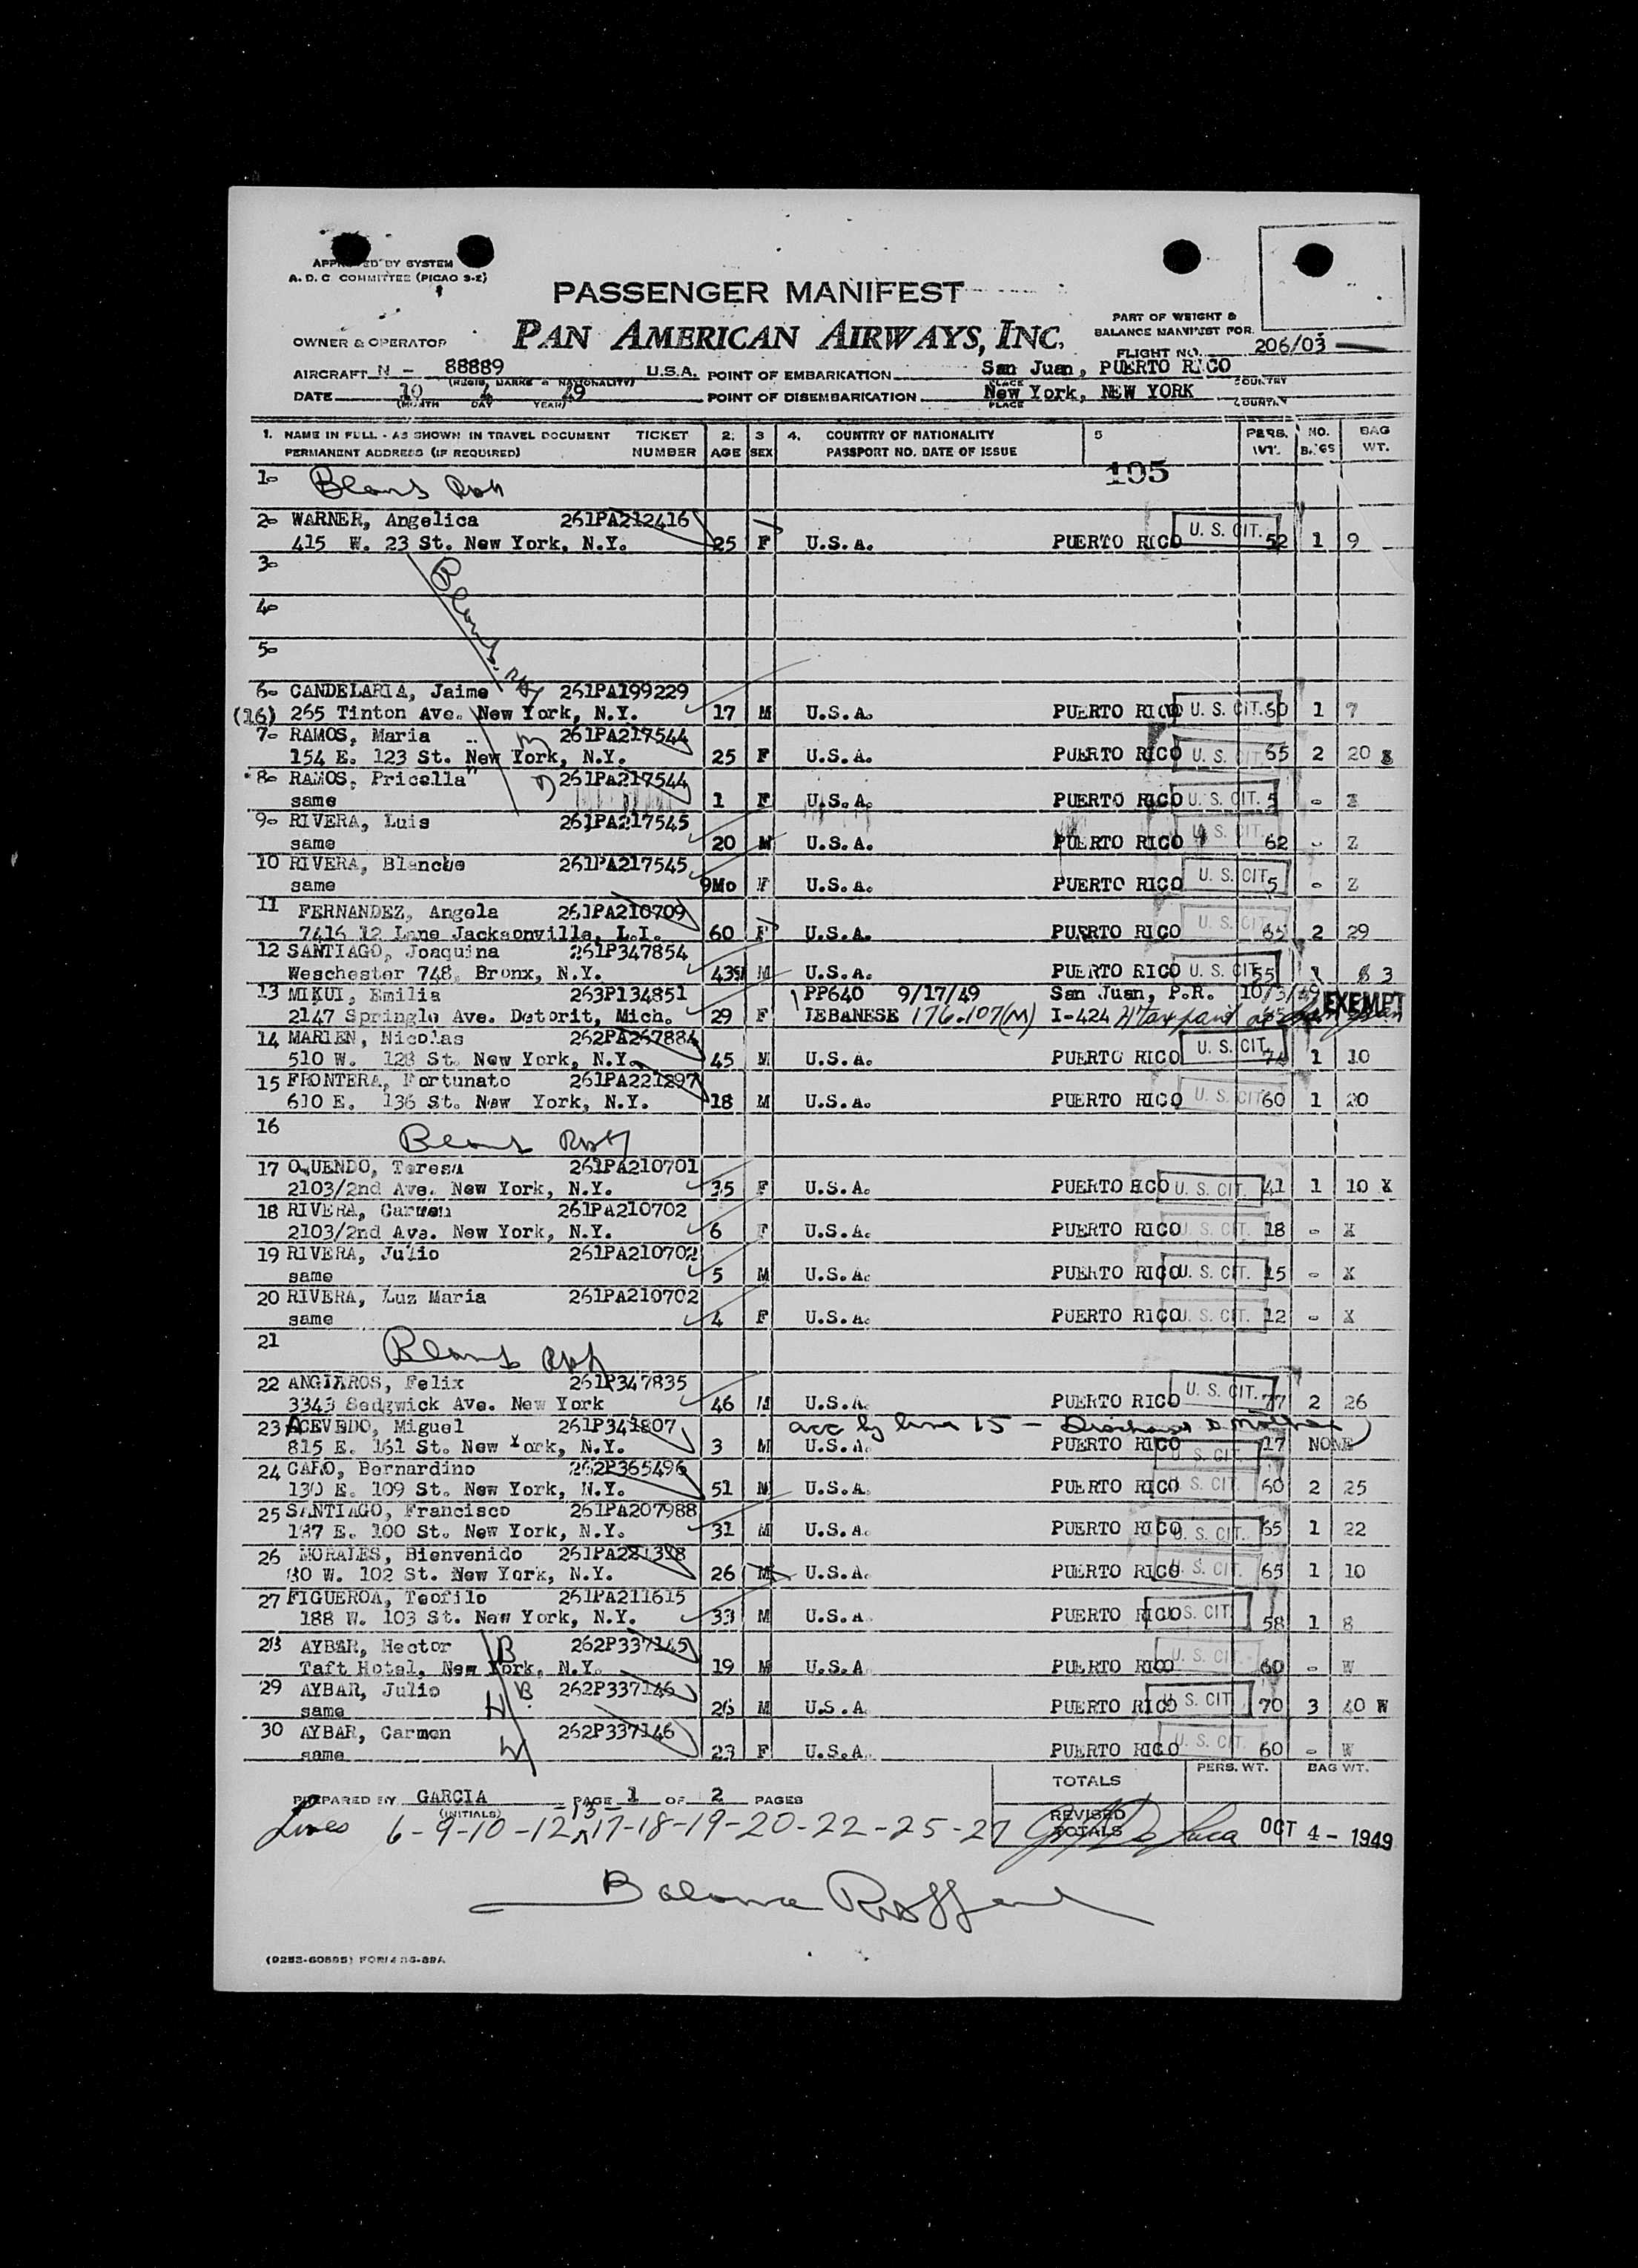 APPROVED BY SYSTEM
A. D. C COMMITTEE (PICAO 3-2)
PASSENGER MANIFEST
OWNER & OPERATOR PAN AMERICAN AIRWAYS, INC.
PART OF WEIGHT &
BALANCE MANIFEST FOR
FLIGHT NO. 206/03
AIRCRAFT N - 88889 U.S.A. POINT OF EMBARKATION San Juan, PUERTO RICO
(REGIS. MARKS & NATIONALITY) PLACE COUNTRY
DATE 10 4 49 POINT OF DISEMBARKATION New York, NEW YORK
(MONTH DAY YEAR) PLACE COUNTRY
1. NAME IN FULL - AS SHOWN IN TRAVEL DOCUMENT TICKET 2. 3 4. COUNTRY OF NATIONALITY 5 PERS. NO. BAG
PERMANENT ADDRESS (IF REQUIRED) NUMBER AGE SEX PASSPORT NO. DATE OF ISSUE WT. BAGS WT.
105
1-
2- WARNER, Angelica 261PA212416
415 W. 23 St. New York, N.Y. 25 F U.S.A. PUERTO RICO U. S. CIT. 52 1 9
3-
4-
5-
6- CANDELARIA, Jaime 261PA199229
(16) 265 Tinton Ave. New York, N.Y. 17 M U.S.A. PUERTO RICO U. S. CIT. 60 1 7
7- RAMOS, Maria 261PA217544
154 E. 123 St. New York, N.Y. 25 F U.S.A. PUERTO RICO U. S. CIT. 65 2 20
8- RAMOS, Pricella 261PA217544
same 1 F U.S.A. PUERTO RICO U. S. CIT. 5 - Z
9- RIVERA, Luis 261PA217545
same 20 M U.S.A. PUERTO RICO U. S. CIT. 62 - Z
10 RIVERA, Blanche 261PA217545
same 9Mo F U.S.A. PUERTO RICO U. S. CIT. 5 - Z
11 FERNANDEZ, Angela 261PA210709
7416 12 Lane Jacksonville, L.I. 60 F U.S.A. PUERTO RICO U. S. CIT. 65 2 29
12 SANTIAGO, Joaquina 261P347854
Weschester 748, Bronx, N.Y. 43 M U.S.A. PUERTO RICO U. S. CIT. 55 1 3
13 MIKUI, Emilia 263P134851 PP640 9/17/49 San Juan, P.R. 10/3/49 EXEMPT
2147 Springle Ave. Detorit, Mich. 29 F LEBANESE 176.107(M) I-424 H Tax paid at San Juan
14 MARIEN, Nicolas 262PA267884
510 W. 128 St. New York, N.Y. 45 M U.S.A. PUERTO RICO U. S. CIT. 74 1 10
15 FRONTERA, Fortunato 261PA221297
610 E. 136 St. New York, N.Y. 18 M U.S.A. PUERTO RICO U. S. CIT. 60 1 20
16
17 OQUENDO, Teresa 261PA210701
2103/2nd Ave. New York, N.Y. 35 F U.S.A. PUERTO RICO U. S. CIT. 41 1 10 X
18 RIVERA, Carmen 261PA210702
2103/2nd Ave. New York, N.Y. 6 F U.S.A. PUERTO RICO U. S. CIT. 18 - X
19 RIVERA, Julio 261PA210702
same 5 M U.S.A. PUERTO RICO U. S. CIT. 15 - X
20 RIVERA, Luz Maria 261PA210702
same 4 F U.S.A. PUERTO RICO U. S. CIT. 12 - X
21
22 ANGIEROS, Felix 261P347835
3343 Sedgwick Ave. New York 46 M U.S.A. PUERTO RICO U. S. CIT. 77 2 26
23 ACEVEDO, Miguel 261P341807 acc by line 15 -
815 E. 161 St. New York, N.Y. 3 M U.S.A. PUERTO RICO U. S. CIT. 17 NONE
24 CARO, Bernardino 262P365496
130 E. 109 St. New York, N.Y. 51 M U.S.A. PUERTO RICO U. S. CIT. 60 2 25
25 SANTIAGO, Francisco 261PA207988
187 E. 100 St. New York, N.Y. 31 M U.S.A. PUERTO RICO U. S. CIT. 65 1 22
26 MORALES, Bienvenido 261PA221318
80 W. 102 St. New York, N.Y. 26 M U.S.A. PUERTO RICO U. S. CIT. 65 1 10
27 FIGUEROA, Teofilo 261PA211615
188 W. 103 St. New York, N.Y. 33 M U.S.A. PUERTO RICO U. S. CIT. 58 1 8
28 AYBAR, Hector B 262P337145
Taft Hotel, New York, N.Y. 19 M U.S.A. PUERTO RICO U. S. CIT. 60 - W
29 AYBAR, Julio H B 262P337146
same 26 M U.S.A. PUERTO RICO U. S. CIT. 70 3 40 W
30 AYBAR, Carmen W 262P337146
same 23 F U.S.A. PUERTO RICO U. S. CIT. 60 - W
TOTALS PERS. WT. BAG WT.
PREPARED BY GARCIA PAGE 1 OF 2 PAGES
(INITIALS)
REVISED TOTALS OCT 4 - 1949
Lines 6-9-10-12-13-17-18-19-20-22-25-27
(9282-60595) FORM